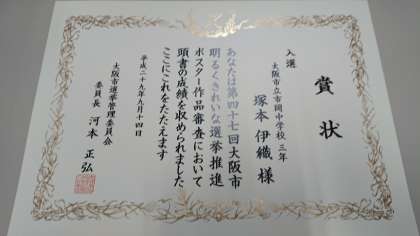 賞状
入選
大阪市立市岡中学校 三年
塚本 伊織 様
あなたは第四十七回大阪市
明るくきれいな選挙推進
ポスター作品審査において
頭書の成績を収められました
ここにこれをたたえます
平成二十九年九月十四日
大阪市選挙管理委員会
委員長 河本 正弘